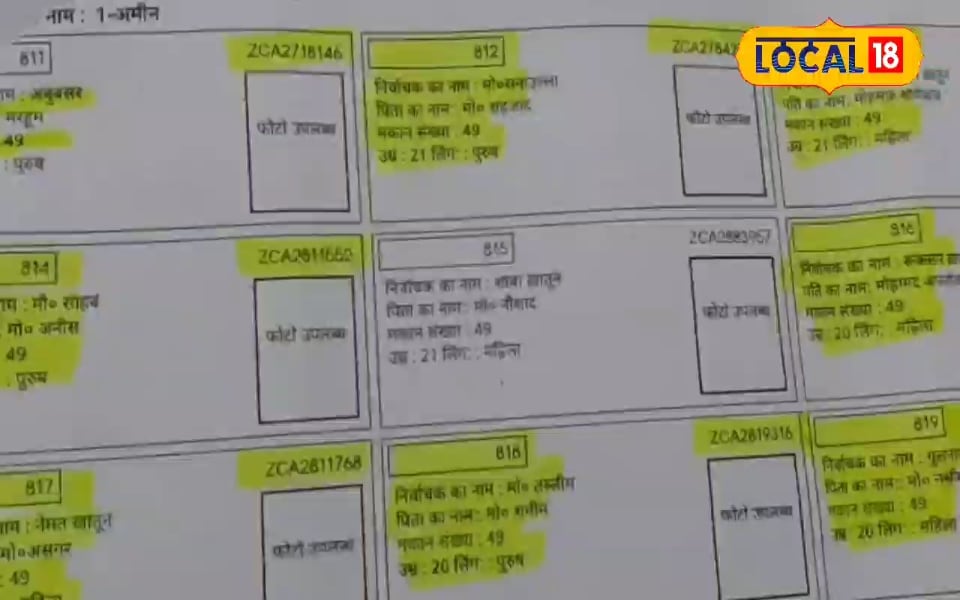 नाम : 1-अमीन
LOCAL 18
811
ZCA2718146
नाम : अबुबसर
मरहूम
49
: पुरुष
फोटो उपलब्ध
812
निर्वाचक का नाम : मो०सनाउल्ला
पिता का नाम : मो०
मकान संख्या : 49
उम्र : 21 लिंग : पुरुष
फोटो उपलब्ध
पति का नाम:
मकान संख्या : 49
उम्र : 21 लिंग : महिला
814
मो० साहब
मो० अनीस
49
: पुरुष
फोटो उपलब्ध
815
ZCA2883967
निर्वाचक का नाम : शाबा खातून
पिता का नाम : मो० नौशाद
मकान संख्या : 49
उम्र : 21 लिंग : महिला
फोटो उपलब्ध
816
निर्वाचक का नाम :
पति का नाम: मोहम्मद
मकान संख्या : 49
उम्र : 20 लिंग : महिला
817
ZCA2811768
नाम : नेमत खातून
मो०असगर
: 49
फोटो उपलब्ध
818
ZCA2819316
निर्वाचक का नाम : मो० तस्लीम
पिता का नाम : मो० शमीम
मकान संख्या : 49
उम्र : 20 लिंग : पुरुष
फोटो उपलब्ध
819
निर्वाचक का नाम :
पिता का नाम : मो०
मकान संख्या : 49
उम्र : 20 लिंग : महिला